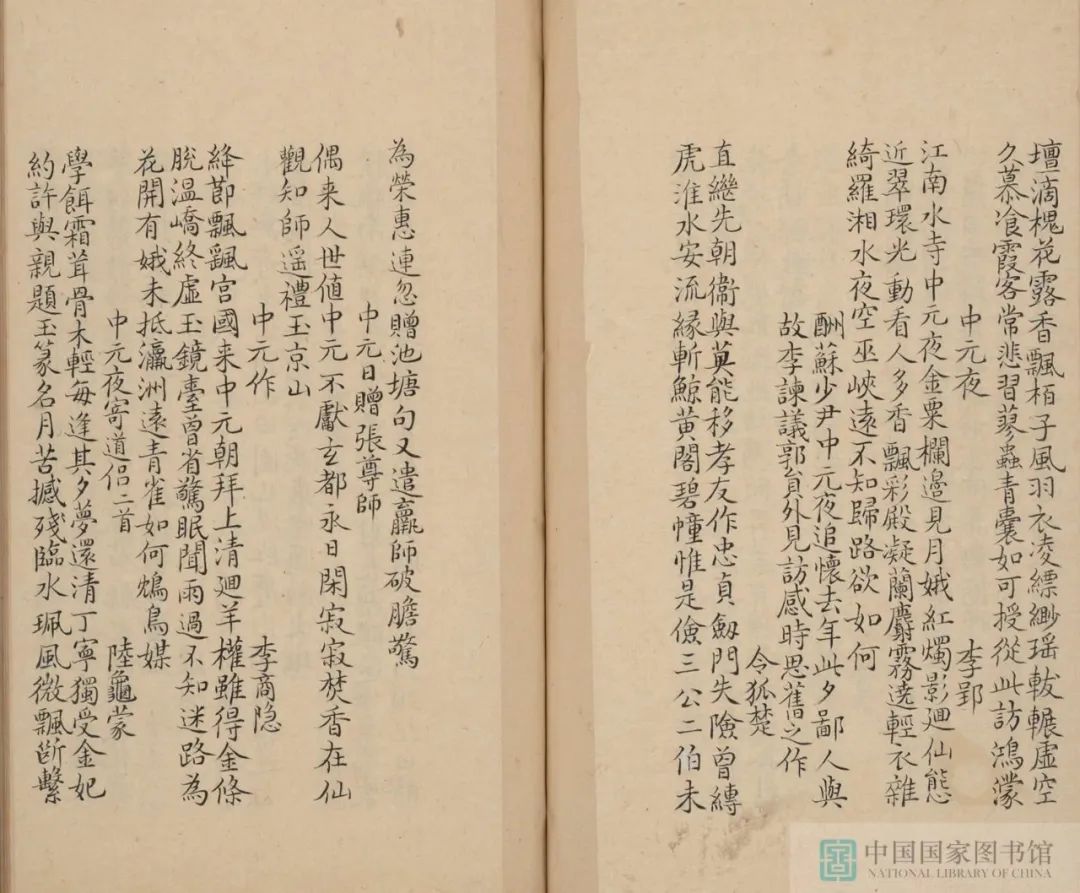 壇滴槐花露香飄栢子風羽衣凌縹緲瑶轂輾虛空
久慕飡霞客常悲習蓼蟲青囊如可授從此訪鴻濛
中元夜 李郢
江南水寺中元夜金粟欄邊見月娥紅燭影廻仙態
近翠環光動看人多香飄彩殿凝蘭麝霧遶輕衣雜
綺羅湘水夜空巫峽遠不知歸路欲如何
酬蘇少尹中元夜追懷去年此夕鄙人與
故李諫議郭貟外見訪感時思舊之作
令狐楚
直繼先朝衞與英能移孝友作忠貞劔門失險曽縳
虎淮水安流緣斬鯨黃閣碧幢惟是儉三公二伯未
為榮惠連忽贈池塘句又遣羸師破膽驚
中元日贈張尊師
偶来人世値中元不獻玄都永日閑寂寂焚香在仙
觀知師遥禮玉京山
中元作 李商隐
絳節飄颻宮國来中元朝拜上清廻羊權雖得金條
脫温嶠終虛玉鏡臺曽省驚眠聞雨過不知迷路為
花開有娥未抵瀛洲遠青雀如何鴆鳥媒
中元夜寄道侣二首 陸龜蒙
學餌霜茸骨未輕每逢其夕夢還清丁寧獨受金妃
約許與親題玉篆名月苦撼殘臨水珮風微飄斷繫
中国国家图书馆
NATIONAL LIBRARY OF CHINA